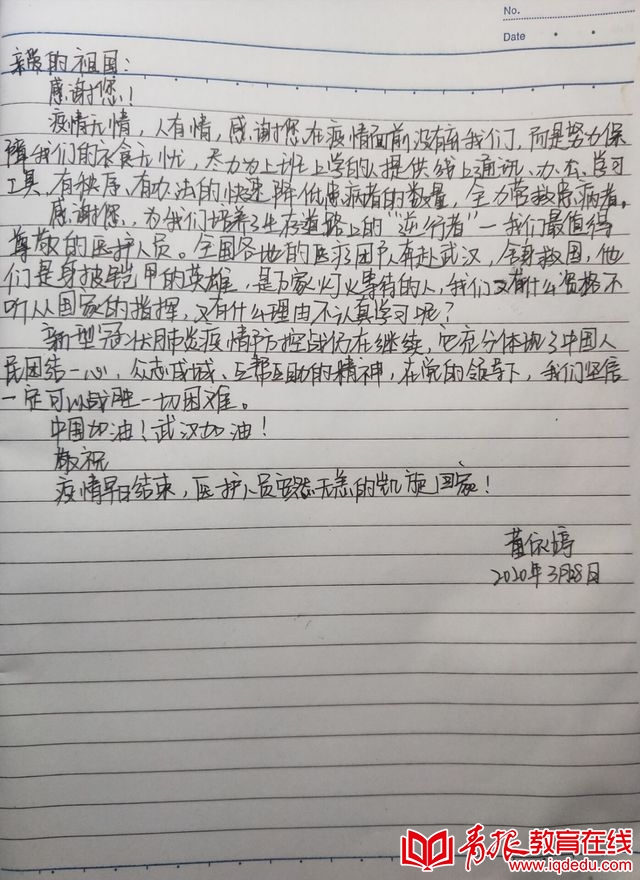 No.
Date
亲爱的祖国：
感谢您！
疫情无情，人有情，感谢您在疫情面前没有弃我们，而是努力保
障我们的衣食无忧，尽力为上班上学的人提供线上通讯、办公、学习
工具，有秩序、有办法的快速降低患病者的数量，全力营救患病者。
感谢您，为我们培养了生存道路上的“逆行者”—我们最值得
尊敬的医护人员。全国各地的医疗团队奔赴武汉，舍身救国，他
们是身披铠甲的英雄，是万家灯火等待的人，我们又有什么资格不
听从国家的指挥，又有什么理由不认真学习呢？
新型冠状肺炎疫情防控战仍在继续，它充分体现了中国人
民团结一心，众志成城、互帮互助的精神，在党的领导下，我们坚信
一定可以战胜一切困难。
中国加油！武汉加油！
敬祝
疫情早日结束，医护人员安然无恙的凯旋回家！
董依婷
2020年3月28日
青报教育在线
www.iqdedu.com